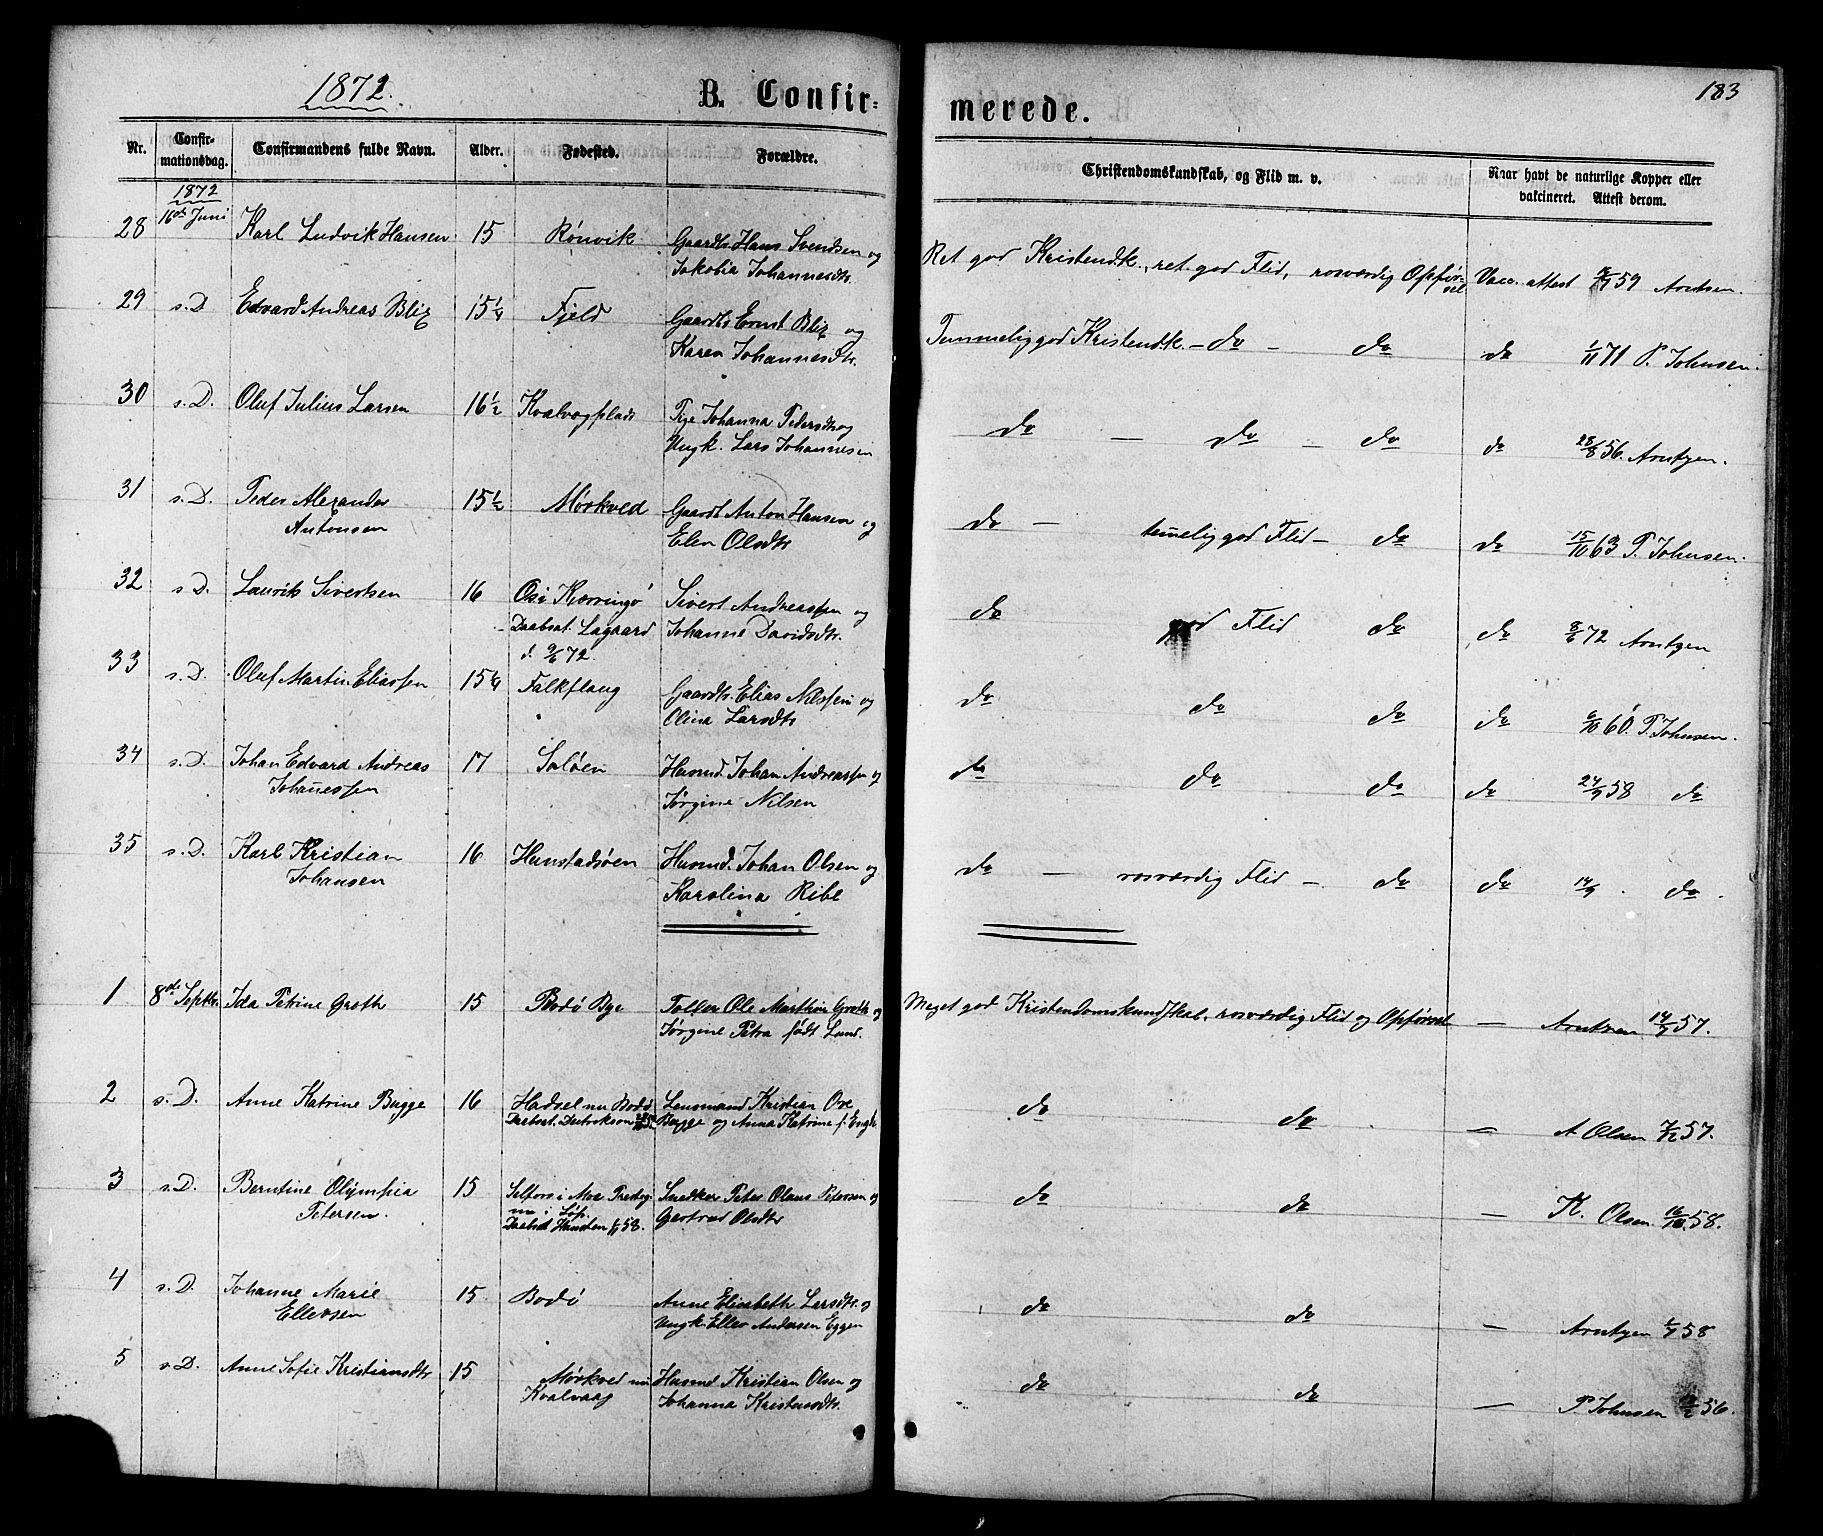 1872.
B. Confir-
merede.
183
Nr.
Confir-
mationsdag.
Confirmandens fulde Navn.
Alder.
Fødested.
Forældre.
Christendomskundskab, og Flid m. v.
Naar havt de naturlige Kopper eller
vakcineret. Attest derom.
1872
28 16de Juni Karl Ludvik Hansen 15 Rönvik Gaardb. Hans Svendsen og
Jakobia Johannesdtr.
Ret god Kristendk., ret god Flid, rosværdig Opför-
sel Vacc. attest 59 Arntsen.
29 s. D Edvard Andreas Blix 15¼ Fjeld Gaardb. Ernst Blix og
Karen Johannesdtr.
Temmelig god Kristendk. - do - do do 1/11 71 P. Johnsen.
30 s. D. Oluf Julius Larsen 16½ Kvalvogplads Pige Johanna Pedersdtr og
Ungk. Lars Johannesen
do - do - do do 28/8 56. Arntzen.
31 s. D. Peder Alexander 15½ Mörkved Gaardb Anton Hansen og
Antonsen Elen Olsdtr
do - temelig god Flid - do do 15/10 63 P. Johnsen.
32 s D. Laurits Sivertsen 16 Os i Kjerringö Sivert Andreassen og
Daabsat. Lagaard Johanne Davidsdtr.
d. 9/6 72.
do god Flid do do 8/6 72 Arntzen
33 s. D. Oluf Martin Eliassen 15¼ Falkflaug Gaardb. Elias Nilssen og
Olina Larsdtr
do do do do 6/10 60. P. Johnsen.
34 s. D. Johan Edvard Andreas 17 Saløen Husmd. Johan Andreassen og
Johanessen Jørgine Nilsen
do do do do 24/9 58 do
35 s. D. Karl Kristian 16 Hunstadsøen Husmd. Johan Olsen og
Johansen Karolina Ribe
do - rosværdig Flid - do do 14/9 . do.
1 8de Septbr. Ida Petrine Groth 15 Bodø Bye Toller Ole Marthin Groth og
Jørgine Petra født Lund.
Meget god Kristendomskundskab, rosværdig Flid og Opförsel - Arntzen 57.
2 s. D. Anne Katrine Bugge 16 Hadsel nu Bodø Lensmand Kristian Ove
Daabsat. Bugge og Anna Katrine f.
do do - A Olsen 7/12 57.
3 s. D. Berntine Olÿmpia 15 Selfors i Mo Snedker Peter Olaus Petersen og
Petersen. Gjertrud Olsdtr
Daabsat 58.
do do - K. Olsen 16/10 58.
4 s. D. Johanne Marie 15 Bodø Anne Elisabeth Larsdtr. og
Ellevsen Ungk. Ellev Andersen Eggen
do do - Arntzen 58
5 s D. Anne Sofie Kristiansdtr 15 Mörkved nu Husmd Kristian Olsen og
Kvalvaag Johanna Kristensdtr.
do do - P. Johnsen 56.